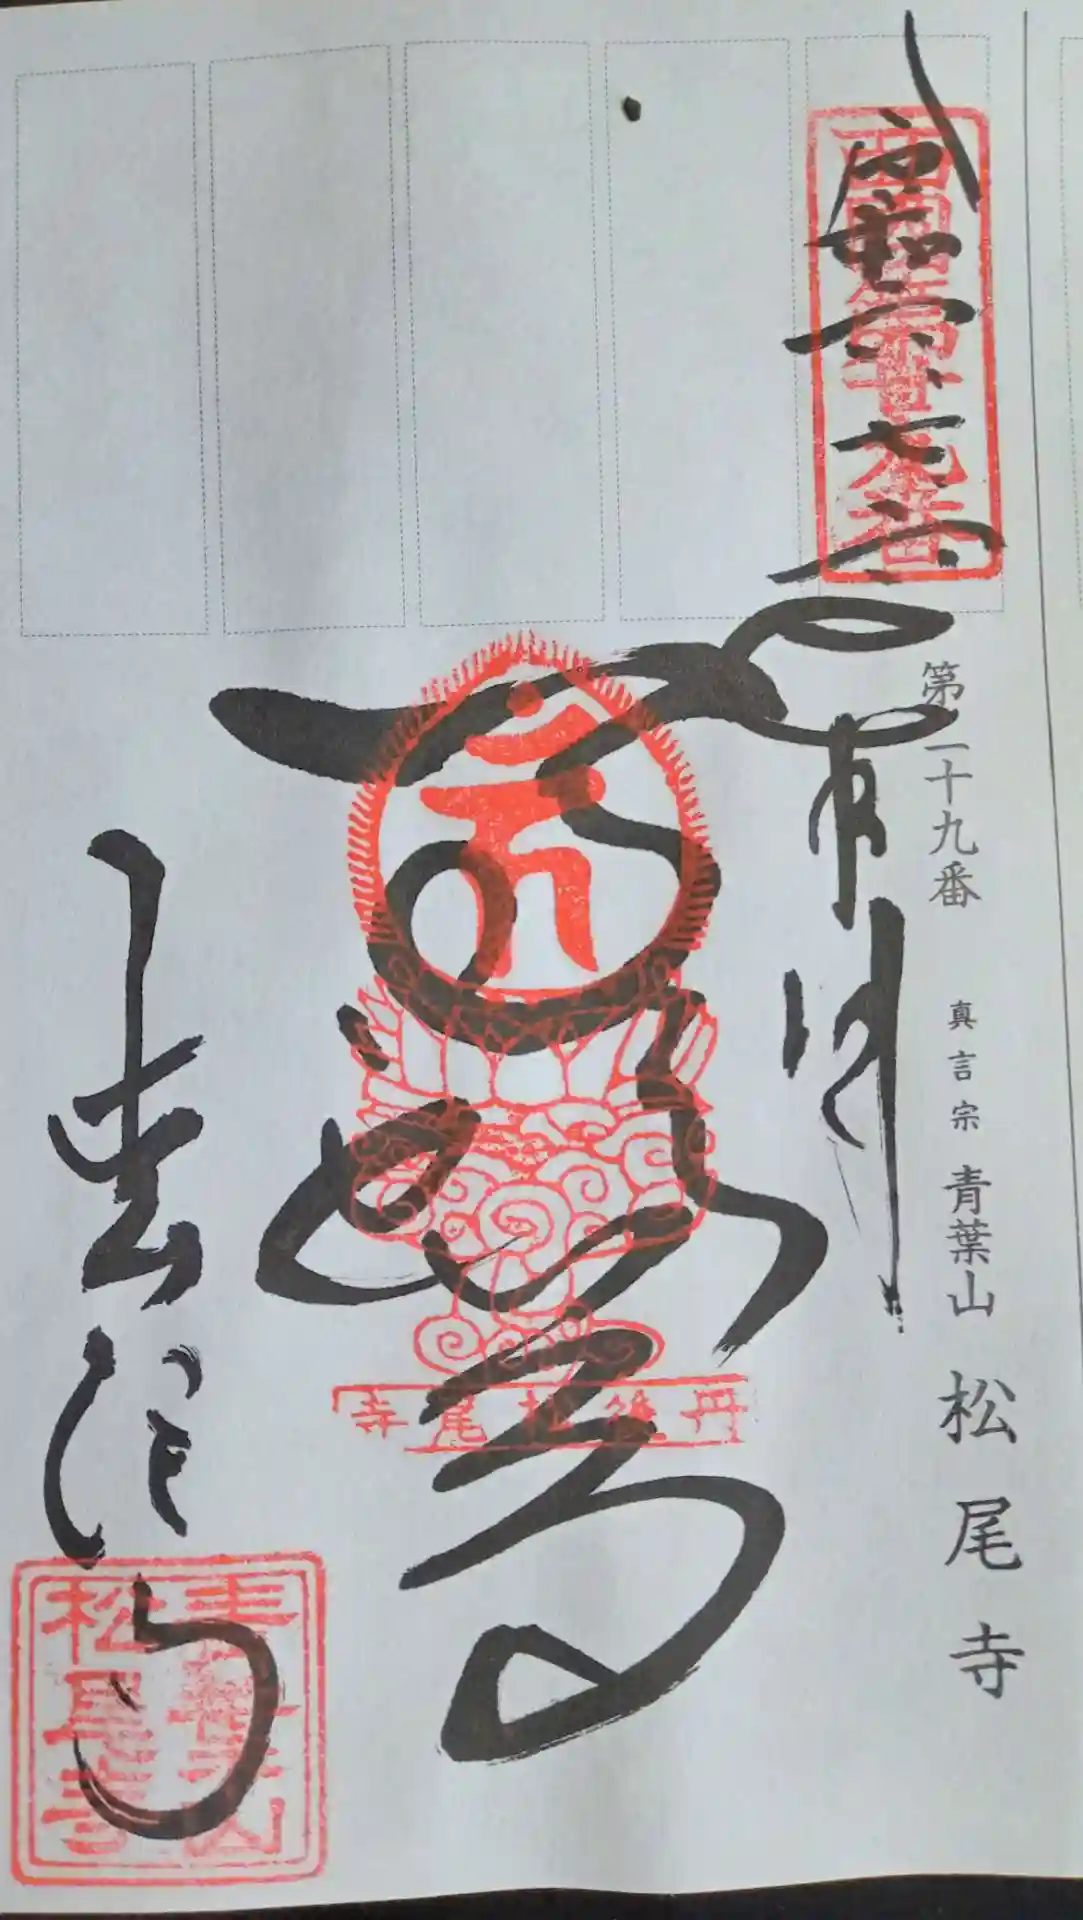 第二十九番 真言宗 青葉山 松尾寺
西国第廿九番
令和六 七 六
丹後松尾寺
松尾寺
青葉山
松尾寺